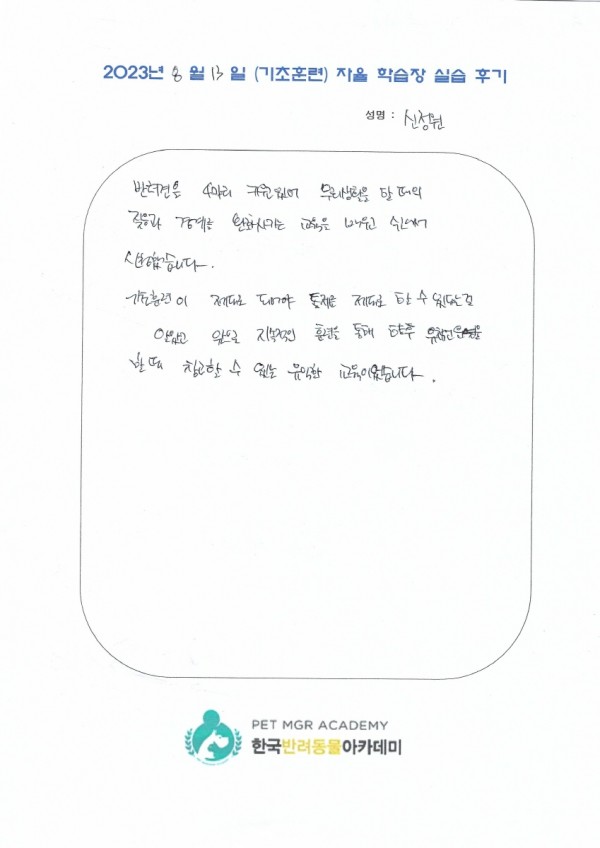 2023년 8월 13일 (기초훈련) 자율 학습장 실습 후기
성명 : 신정원
반려견을 4마리 키우고있어 무리생활을 할 때의
짖음과 경계를 완화시키는 교육을 배우고 싶어서
신청했습니다.
기초훈련이 제대로 돼야 통제를 제대로 할 수 있다는걸
알았고 앞으로 지속적인 훈련을 통해 향후
할 때 참고할 수 있는 유익한 교육이었습니다.
PET MGR ACADEMY
한국반려동물아카데미